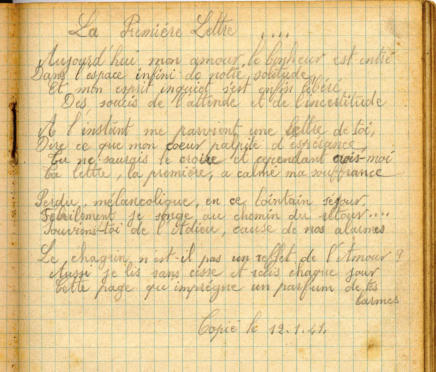 La Première Lettre ....
Aujourd'hui mon amour, le bonheur est entré
Dans l'espace infini de notre solitude
Et mon esprit inquiet s'est enfin libéré
Des soucis de l'attente et de l'incertitude
A l'instant me parvient une lettre de toi,
Dire ce que mon coeur palpite d'espérance
Tu ne saurais le croire et cependant crois-moi
Ta lettre, la première, a calmé ma souffrance
Perdu, mélancolique, en ce lointain séjour,
Fébrilement je songe au chemin du retour....
Souviens-toi de l'Adieu, cause de nos alarmes
Le chagrin n'est-il pas un reflet de l'Amour ?
Aussi je lis sans cesse et relis chaque jour
Cette page qu'imprègne un parfum de tes
larmes
Copié le 12.1.41.